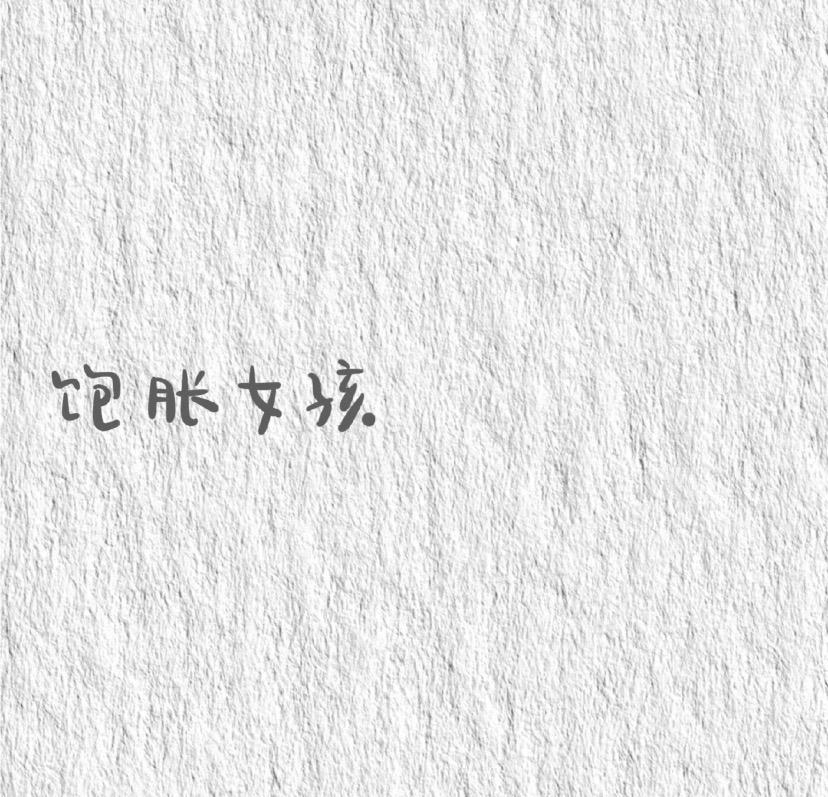 饱胀女孩.